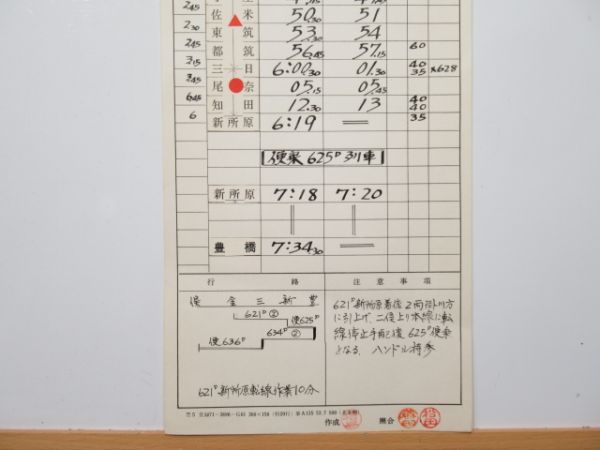 2 45
佐 米 50.30 51
2 30
東 筑 53.30 54
2 45
都 筑 56.45 57.15 60
3 15
三 日 6:00.30 01.30 40 35 ×628
3 45
尾 奈 05.15 05.45
6 45
知 田 12.30 13 40 40
6
新所原 6:19 35
便乗 625D 列車
新所原 7:18 7:20
豊橋 7:34.30
行 路
浜 金 三 新 豊
621D ②
便625D
634D ②
便636D
621D新所原転線作業10分
注 意 事 項
621D新所原着後2両掛川方
に引上げ、二俣上り本線に転
線停止手配後 625D便乗
となる。ハンドル持参
作成
照合